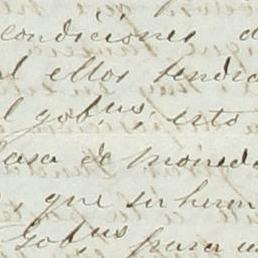 condiciones d
al ellos tendra
l gob.us; esto
Casa de moneda
, que su herm
Gob.us para u